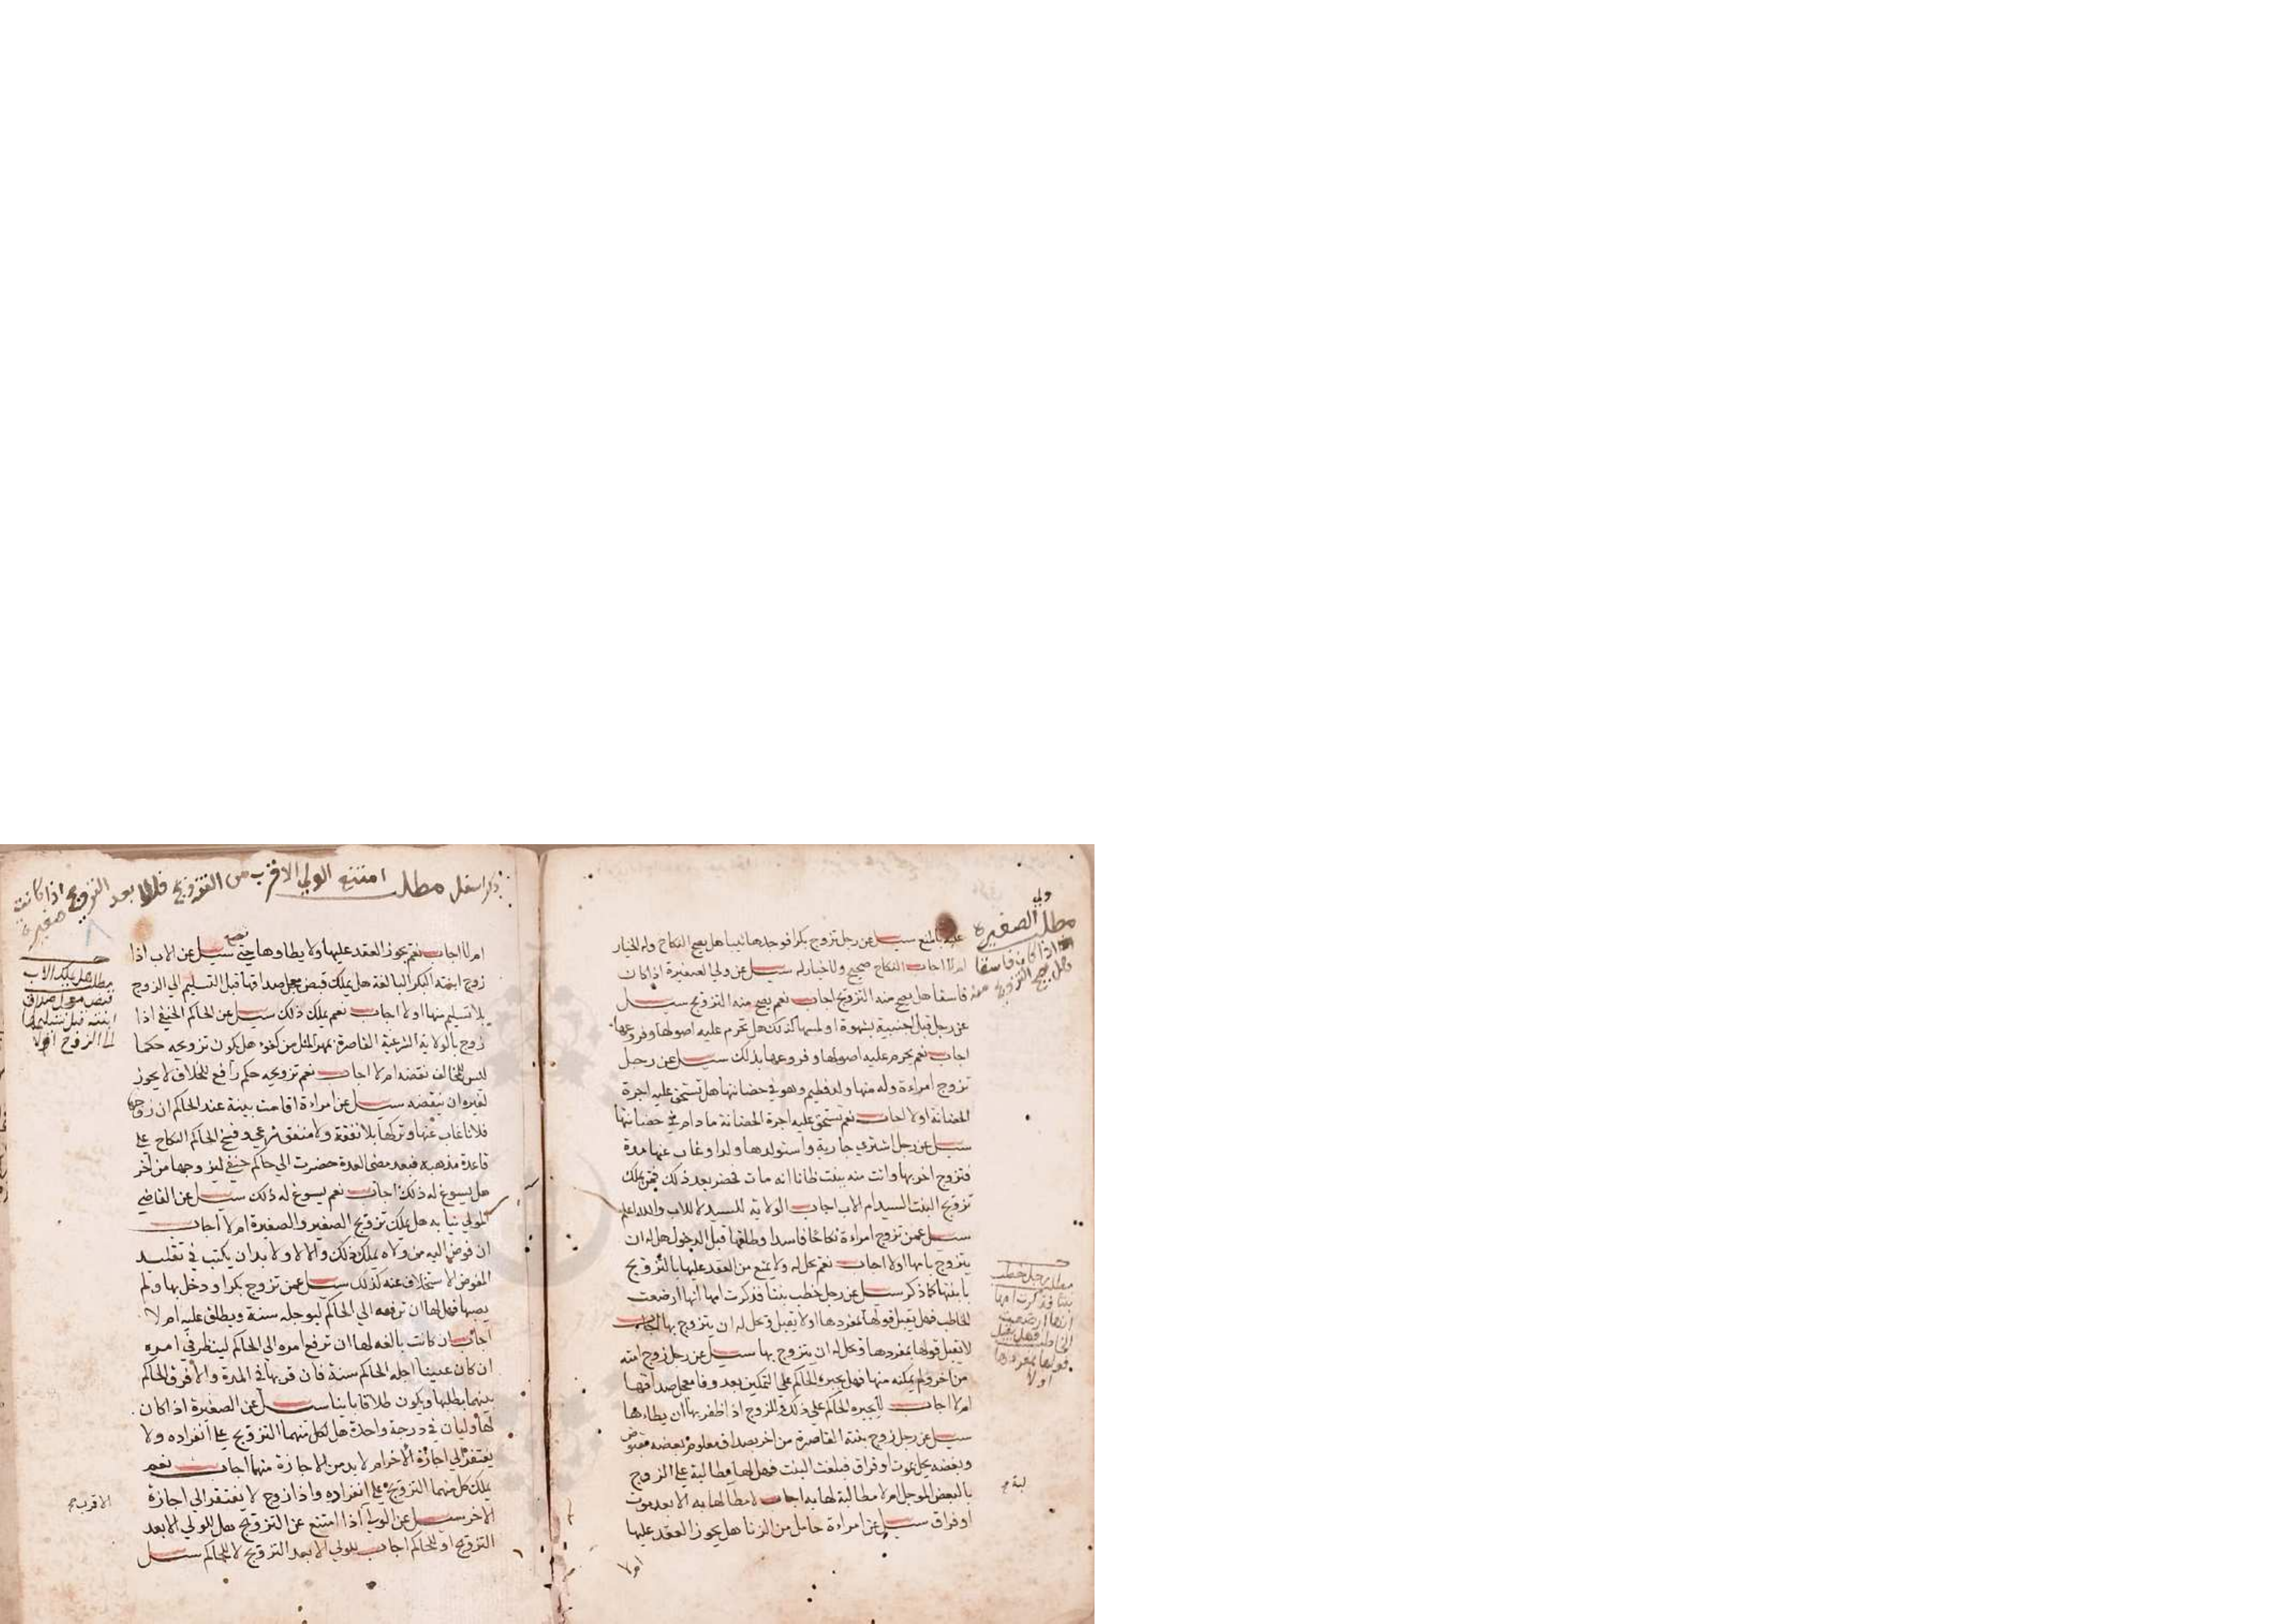 ولي
مطلب الصغيرة
اذا كان فاسقا
هل يصح التزويج منه
عليه بالمنع سيل عن رجل تزوج بكرا فوجدها ثيبا هل يصح النكاح وله الخيار
ام لا اجاب النكاح صحيح ولا خيار له سيل عن ولي الصغيرة اذا كان
فاسقا هل يصح منه التزويج اجاب نعم يصح منه التزويج سيل
عن رجل قبل اجنبية بشهوة او لمسها كذلك هل تحرم عليه اصولها وفروعها
اجاب نعم يحرم عليه اصولها وفروعها بذلك سيل عن رجل
تزوج امراءة وله منها ولد فطيم وهو في حضانتها هل تستحق عليه اجرة
الحضانة اولا اجاب نعم تستحق عليه اجرة الحضانة ما دام في حضانتها
سيل عن رجل اشتري جارية واستولدها ولدا وغاب عنها مدة
فتزوج اخر بها واتت منه ببنت ظانا انه مات فحضر بعد ذلك فمن يملك
تزويج البنت السيد ام الاب اجاب الولاية للسيد لا للاب والله اعلم
سيل عمن تزوج امراءة نكاحا فاسدا وطلقها قبل الدخول هل له ان
يتزوج بامها اولا اجاب نعم يحل له ولا يمنع من العقد عليها بالتزويج
بابنتها كما ذكر سيل عن رجل خطب بنتا فذكرت امها انها ارضعت
الخاطب فهل يقبل قولها بمفردها اولا يقبل ويحل له ان يتزوج بها اجاب
لا يقبل قولها بمفردها ويحل له ان يتزوج بها سيل عن رجل زوج ابنته
من اخر ولم يمكنه منها فهل يجبره الحاكم علي التمكين بعد وفا معجل صداقها
ام لا اجاب يجبره الحاكم علي ذلك وللزوج اذا ظفر بها ان يطاءها
سيل عن رجل زوج بنته القاصرة من اخر بصداق معلوم بعضه مقبوض
وبعضه يحل بموت او فراق فبلغت البنت فهل لها مطالبة علي الزوج
بالبعض الموجل ام لا مطالبة لها به اجاب لا مطالبة لها به الا بعد موت
او فراق سيل عن امراءة حامل من الزنا هل يجوز العقد عليها
ام لا
مطلب رجل خطب
بنتا فذكرت امها
انها ارضعت
الخاطب فهل يقبل
قولها بمفردها
اولا
لبة
مطلب امتنع الولي الاقرب من التزويج بعد التزويج اذا كانت
صغيرة
ام لا اجاب نعم يجوز العقد عليها ولا يطاوها حتي تضع سيل عن الاب اذا
زوج ابنته البكر البالغة هل يملك قبض معجل صداقها قبل التسليم الي الزوج
بلا تسليم منها اولا اجاب نعم يملك ذلك سيل عن الحاكم الحنفي اذا
زوج بالولاية الشرعية القاصرة بمهر المثل من كفوء هل يكون تزويجه حكما
ليس للمخالف نقضه ام لا اجاب نعم تزويجه حكم رافع للخلاف لا يجوز
لغيره ان ينقضه سيل عن امراءة اقامت بينة عند الحاكم ان زوجها
فلانا غاب عنها وتركها بلا نفقة ولا منفق شرعي وفسخ الحاكم النكاح علي
قاعدة مذهبه فبعد مضي العدة حضرت الي حاكم حنفي ليزوجها من اخر
هل يسوغ له ذلك اجاب نعم يسوغ له ذلك سيل عن القاضي
المولي نيابه هل يملك تزويج الصغير والصغيرة ام لا اجاب
ان فوض اليه من ولاه يملك ذلك والا لا ولا بد ان يكتب في تقليد
المفوض الاستخلاف عنه كذلك سيل عمن تزوج بكرا ودخل بها ولم
يصبها فهل لها ان ترفعه الي الحاكم ليوجله سنة ويطلق عليه ام لا
اجاب ان كانت بالغه لها ان ترفع امره الي الحاكم لينظر في امره
ان كان عنينا اجله الحاكم سنة فان قربها في المدة والا فرق الحاكم
بينهما بطلبها ويكون طلاقا باينا سيل عن الصغيرة اذا كان
لها وليان في درجة واحدة هل لكل منهما التزويج علي انفراده ولا
يفتقر الي اجازة الاخر ام لا بد من الاجازة منهما اجاب نعم
يملك كل منهما التزويج علي انفراده واذا زوج لا يفتقر الي اجازة
الاخر سيل عن الولي اذا امتنع عن التزويج هل للولي الابعد
التزويج او للحاكم اجاب للولي الابعد التزويج لا للحاكم سيل
مطلب هل يملك الاب
قبض معجل صداق
ابنته قبل تسليمها
الي الزوج اولا
الاقرب صح